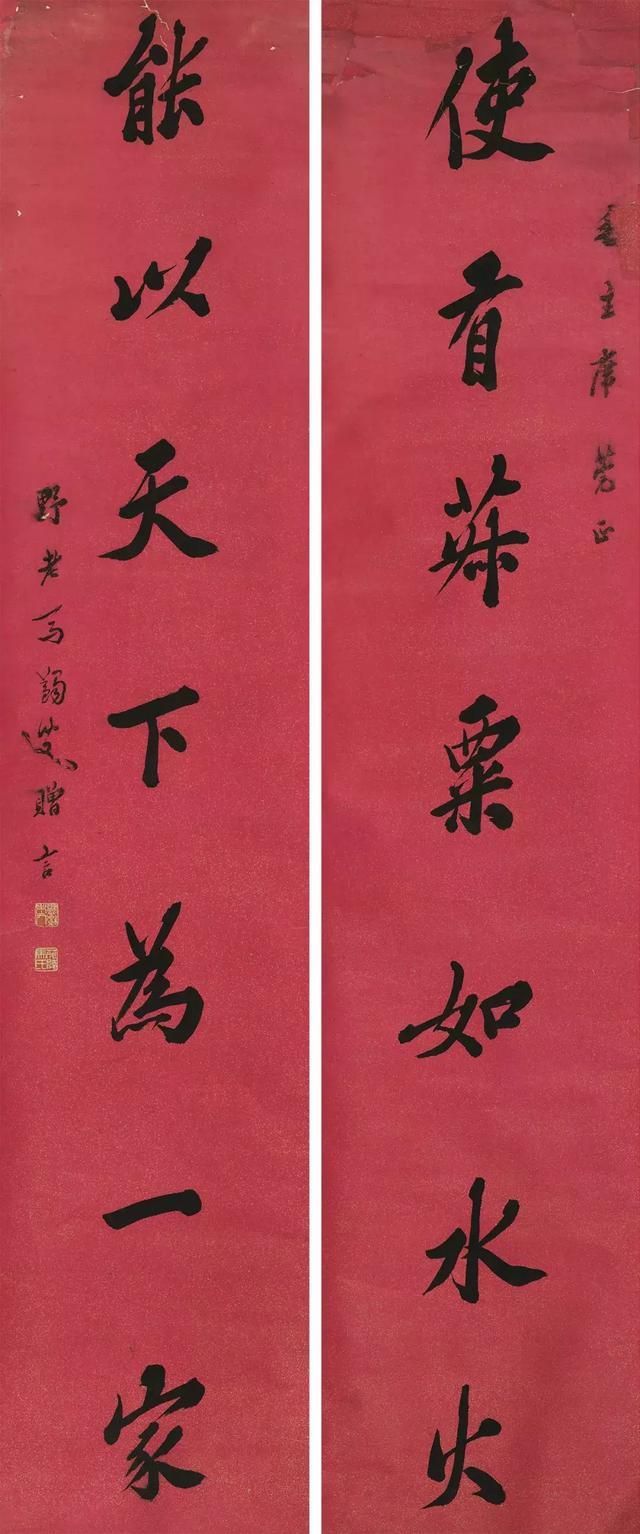 毛主席莞正
使有菽粟如水火
能以天下為一家
野老馬蠲叟贈言